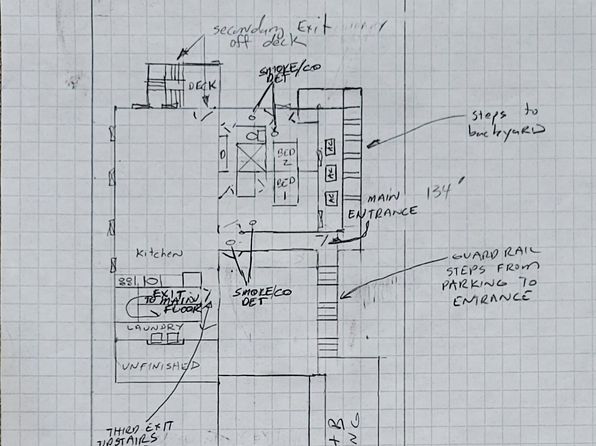 secondary Exit
off deck
SMOKE/CO
DET
DECK
steps to
backyard
BED
2
BED
1
AC
AC
AC
MAIN
ENTRANCE
134'
Kitchen
GUARD RAIL
STEPS FROM
PARKING TO
ENTRANCE
EXIT
TO MAIN
FLOOR
SMOKE/CO
DET
LAUNDRY
UNFINISHED
THIRD EXIT
UPSTAIRS